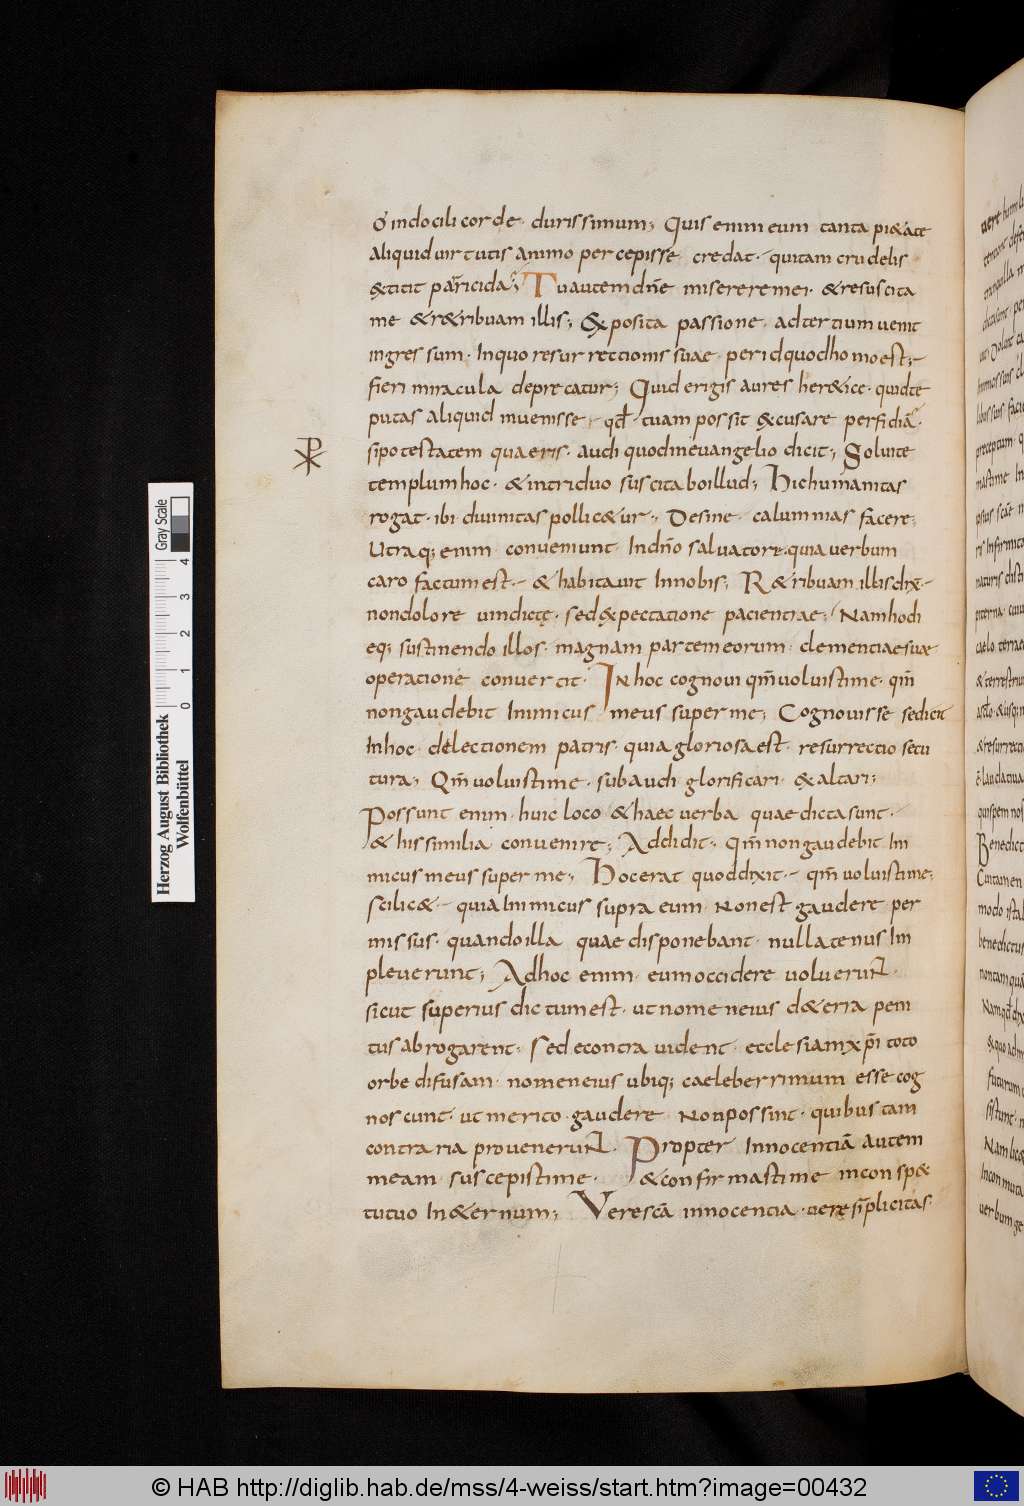 ó indocili corde· durissimum; Quis enim eum tanta pi&ate
aliquid uirtutis animo percepisse credat· qui tam crudelis
&titit parricida; Tu autem dn̄e miserere mei· & resuscita
me & r&ribuam illis; & posita passione· ad tertium uenit
ingressum· In quo resurrectionis suae· per id quod homo est;
fieri miracula deprecatur; Quid erigis aures her&ice· quid te
putas aliquid inuenisse· qđ tuam possit &cusare perfidiā·
si potestatem quaeris· audi quod in euangelio dicit; Soluite
templum hoc· & in triduo suscitabo illud; Hic humanitas
rogat· ibi diuinitas pollic&ur; Desine calumnias facere;
Utraq; enim conueniunt In dn̄o saluatore· quia uerbum
caro factum est· & habitauit In nobis; R&ribuam illis dix̄
non dolore uindictę· sed &pectatione pacientiae; Nam hodi
eq; sustinendo illos· magnam partem eorum clementiae suae
operatione conuertit· In hoc cognoui qm̄ uoluisti me· qm̄
non gaudebit Inimicus meus super me; Cognouisse se dicit
In hoc delectionem patris· quia gloriosa est resurrectio secu
tura; Qm̄ uoluisti me· subaudi glorificari· & altari;
Possunt enim huic loco & haec uerba quae dicta sunt·
& his similia conuenire; Addidit; qm̄ non gaudebit Ini
micus meus super me; Hoc erat quod dixit· qm̄ uoluisti me;
scilic& quia Inimicus supra eum Non est gaudere per
missus· quando illa quae disponebant nullatenus Im
pleuerunt; Ad hoc enim eum occidere uoluerunt·
sicut superius dictum est· ut nomen eius de terra peni
tus abrogarent; Sed econtra uident ecclesiam xp̄i toto
orbe difusam· nomen eius ubiq; caeleberrimum esse cog
noscunt· ut merito gaudere Non possint· quibus tam
contraria prouenerunt· Propter Innocentiā autem
meam suscepisti me· & confirmasti me in conspe
tu tuo In &ernum; Vere scā innocentia· uere sīplicitas·
Herzog August Bibliothek
Wolfenbüttel
0 1 2 3 4
Gray Scale
© HAB http://diglib.hab.de/mss/4-weiss/start.htm?image=00432